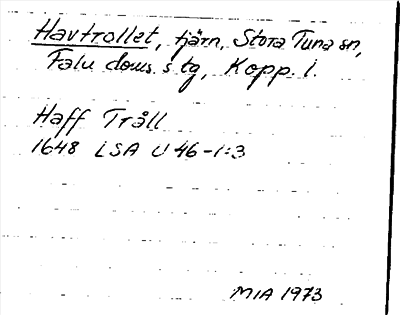 Havtrollet, tjärn, Stora Tuna sn,
Falu doms.s tg, Kopp. l.
Haff Tråll
1648 LSA U 46-1:3
MIA 1973